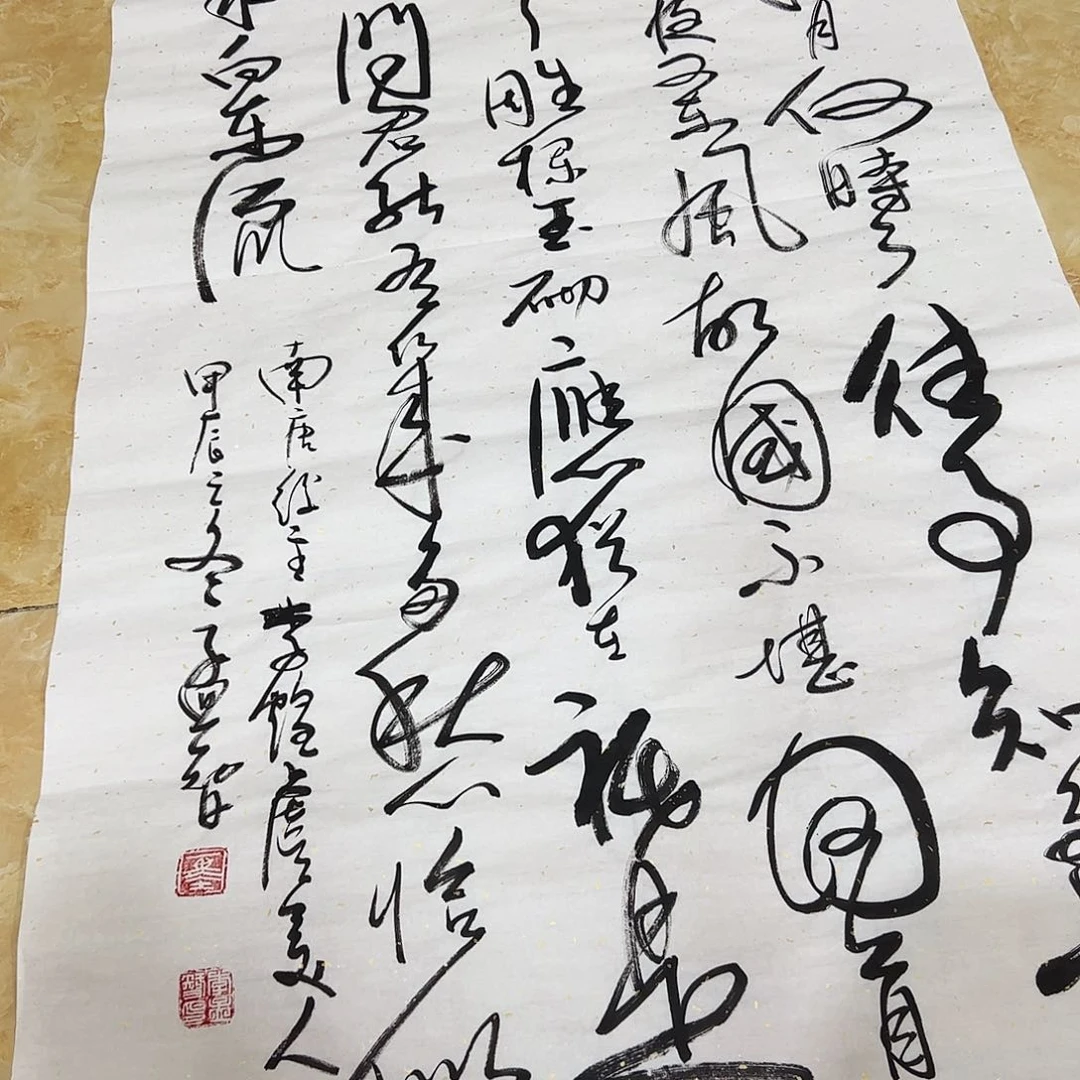 月何時了往事知
夜又東風故國不堪回首月
雕欄玉砌應猶在祇是
問君能有幾多愁恰似
水向東流
南唐後主李煜虞美人
甲辰之冬